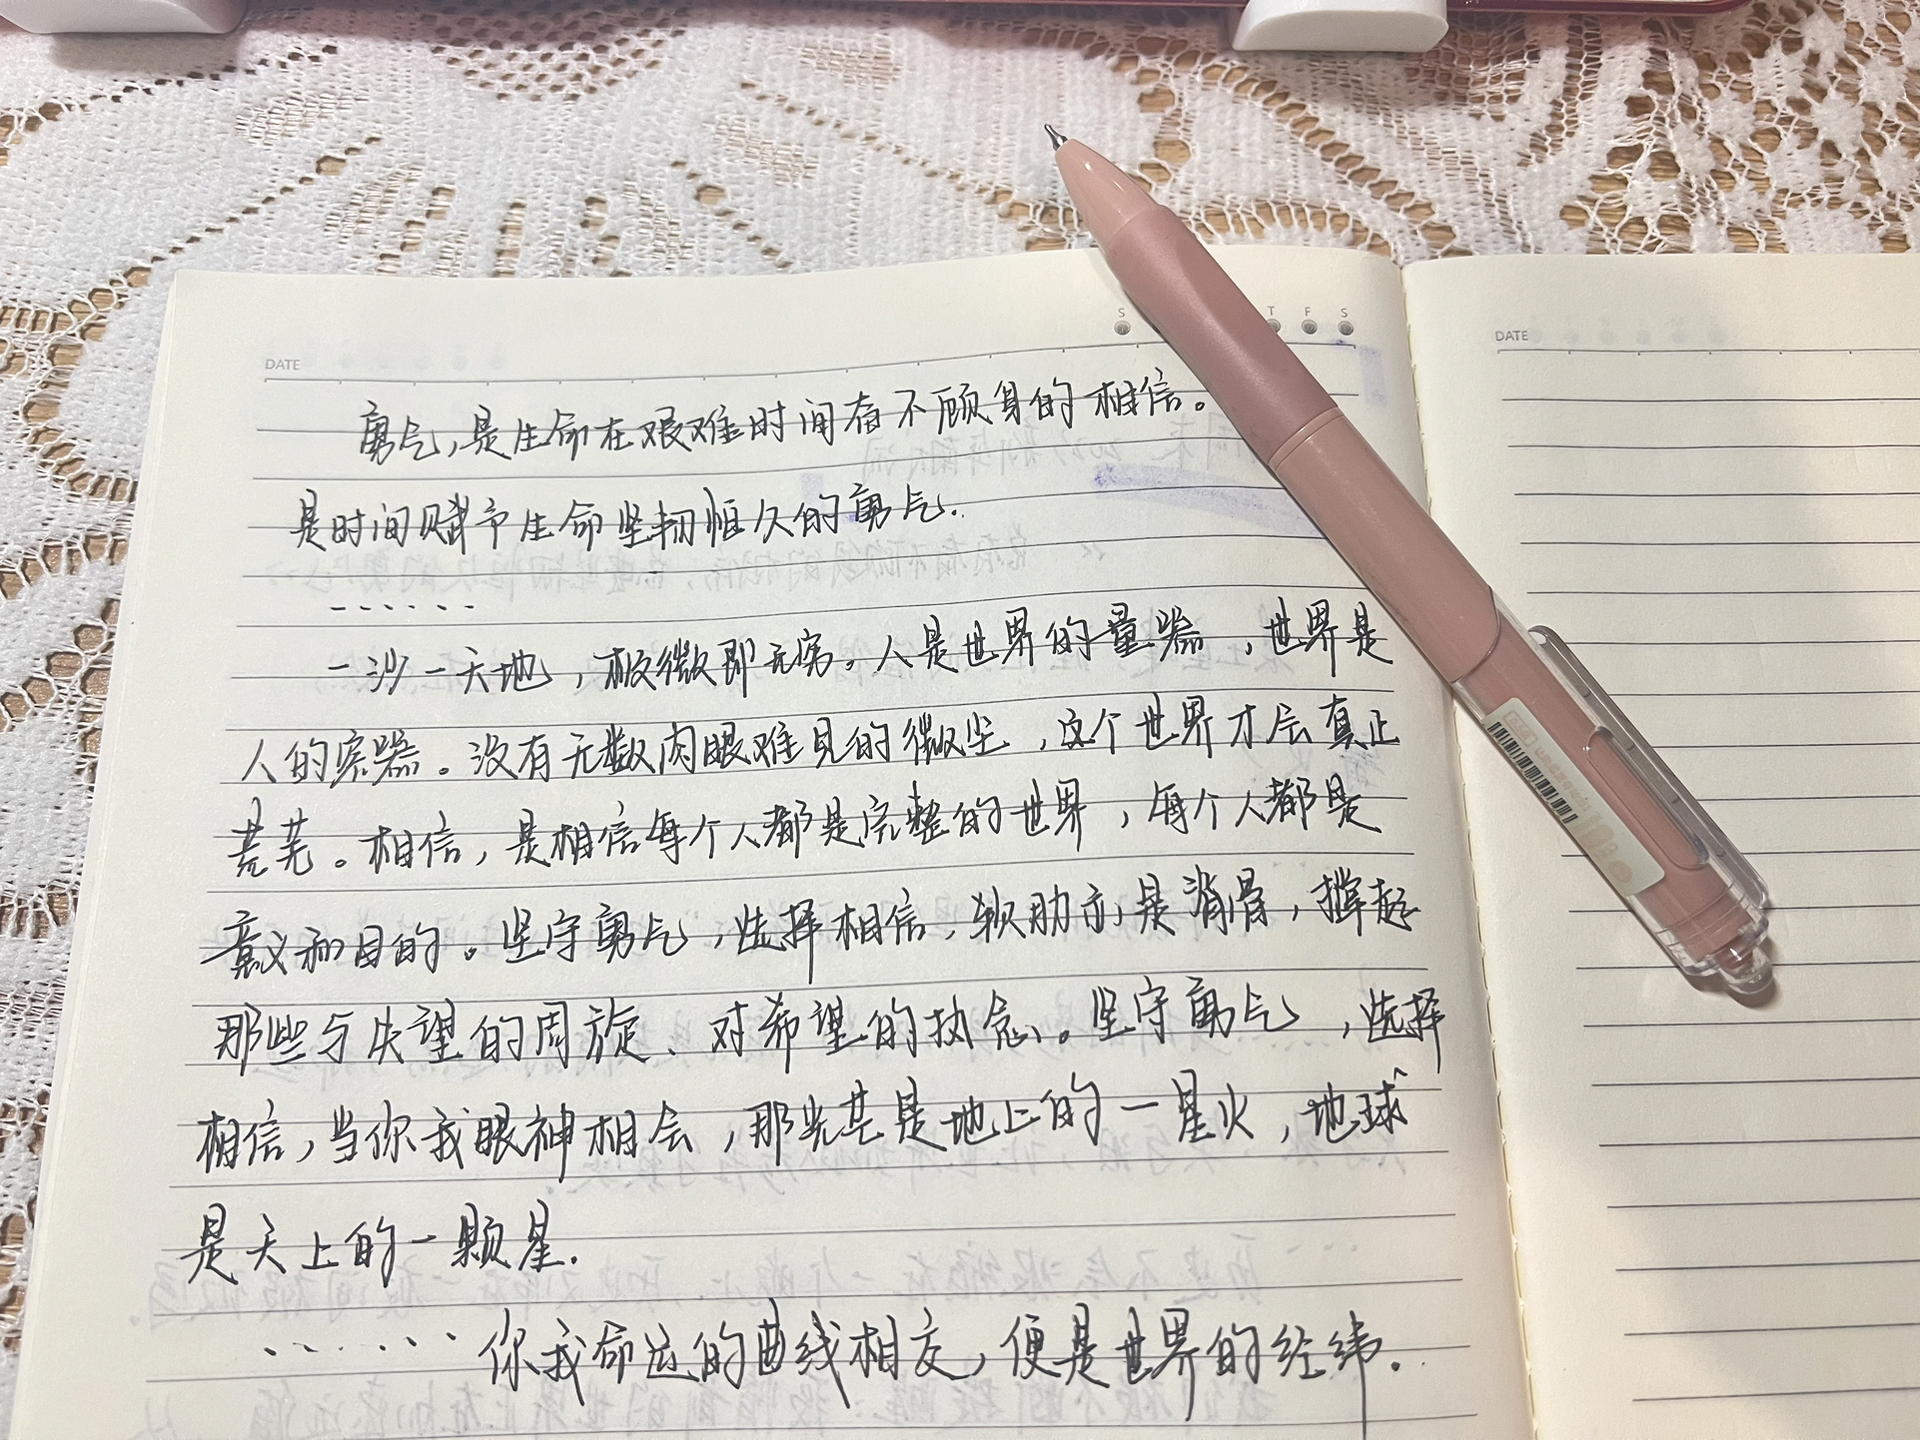 DATE
S T F S
DATE
勇气,是生命在艰难时间奋不顾身的相信。
是时间赋予生命坚韧恒久的勇气.
......
一沙一天地,极微即无穷。人是世界的量器,世界是
人的容器。没有无数肉眼难见的微尘,这个世界才会真正
荒芜。相信,是相信每个人都是完整的世界,每个人都是
意义和目的。坚守勇气,选择相信,软肋亦是脊骨,撑起
那些与失望的周旋、对希望的执念。坚守勇气,选择
相信,当你我眼神相会,那光芒是地上的一星火,地球
是天上的一颗星.
......你我命运的曲线相交,便是世界的经纬.